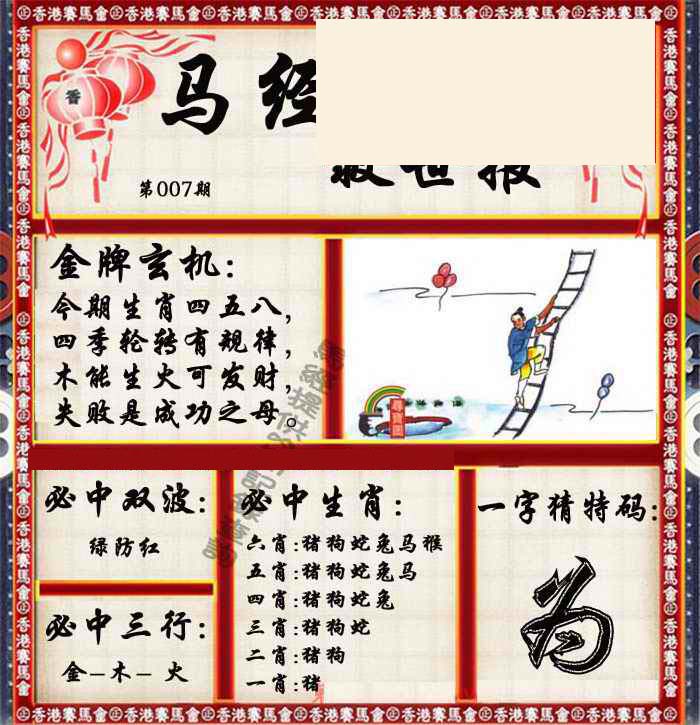 马经
救世报
香
第007期
金牌玄机:
今期生肖四五八,
四季轮转有规律,
木能生火可发财,
失败是成功之母。
必中双波:
绿防红
必中三行:
金-木-火
必中生肖:
六肖:猪狗蛇兔马猴
五肖:猪狗蛇兔马
四肖:猪狗蛇兔
三肖:猪狗蛇
二肖:猪狗
一肖:猪
一字猜特码:
为
香港赛馬會